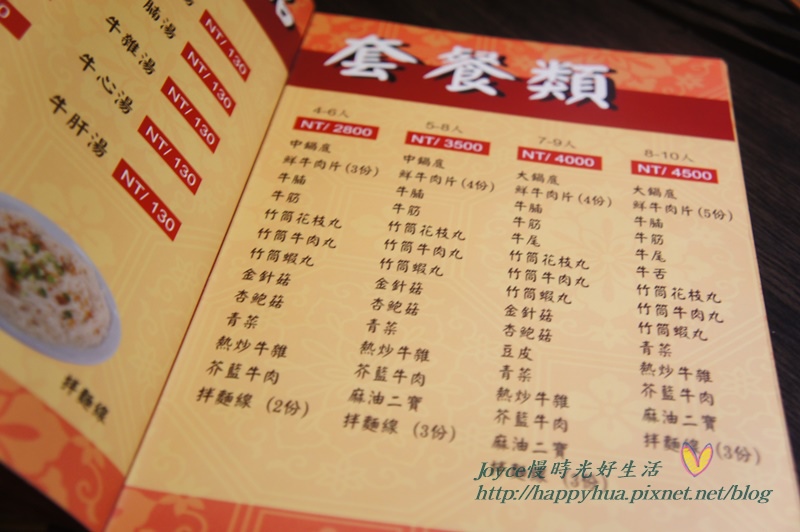 腩湯
NT/ 130
牛雜湯
NT/ 130
牛心湯
NT/ 130
牛肝湯
NT/ 130
拌麵線
套餐類
4-6人
NT/ 2800
中鍋底
鮮牛肉片(3份)
牛腩
牛筋
竹筒花枝丸
竹筒牛肉丸
竹筒蝦丸
金針菇
杏鮑菇
青菜
熱炒牛雜
芥藍牛肉
拌麵線 (2份)
5-8人
NT/ 3500
中鍋底
鮮牛肉片(4份)
牛腩
牛筋
竹筒花枝丸
竹筒牛肉丸
竹筒蝦丸
金針菇
杏鮑菇
青菜
熱炒牛雜
芥藍牛肉
麻油二寶
拌麵線 (3份)
7-9人
NT/ 4000
大鍋底
鮮牛肉片(4份)
牛腩
牛筋
牛尾
竹筒花枝丸
竹筒牛肉丸
竹筒蝦丸
金針菇
杏鮑菇
豆皮
青菜
熱炒牛雜
芥藍牛肉
麻油二寶
8-10人
NT/ 4500
大鍋底
鮮牛肉片(5份)
牛腩
牛筋
牛尾
牛舌
竹筒花枝丸
竹筒牛肉丸
竹筒蝦丸
青菜
熱炒牛雜
芥藍牛肉
麻油二寶
拌麵線 (3份)
Joyce慢時光好生活
http://happyhua.pixnet.net/blog